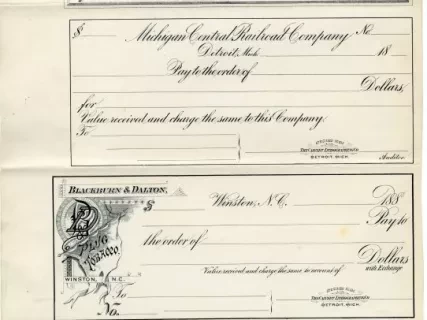 $ Michigan Central Railroad Company No
Detroit, Mich. 18
Pay to the order of
Dollars,
for
Value received and charge the same to this Company.
To
The Calvert Lithographing Co.
DETROIT, MICH. Auditor.
BLACKBURN & DALTON,
$ Winston, N.C. 188
Pay to
PLUG TOBACCO
the order of
Dollars
with Exchange
Value received and charge the same to account of
WINSTON, N.C.
To
No.
The Calvert Lithographing Co.
DETROIT, MICH.